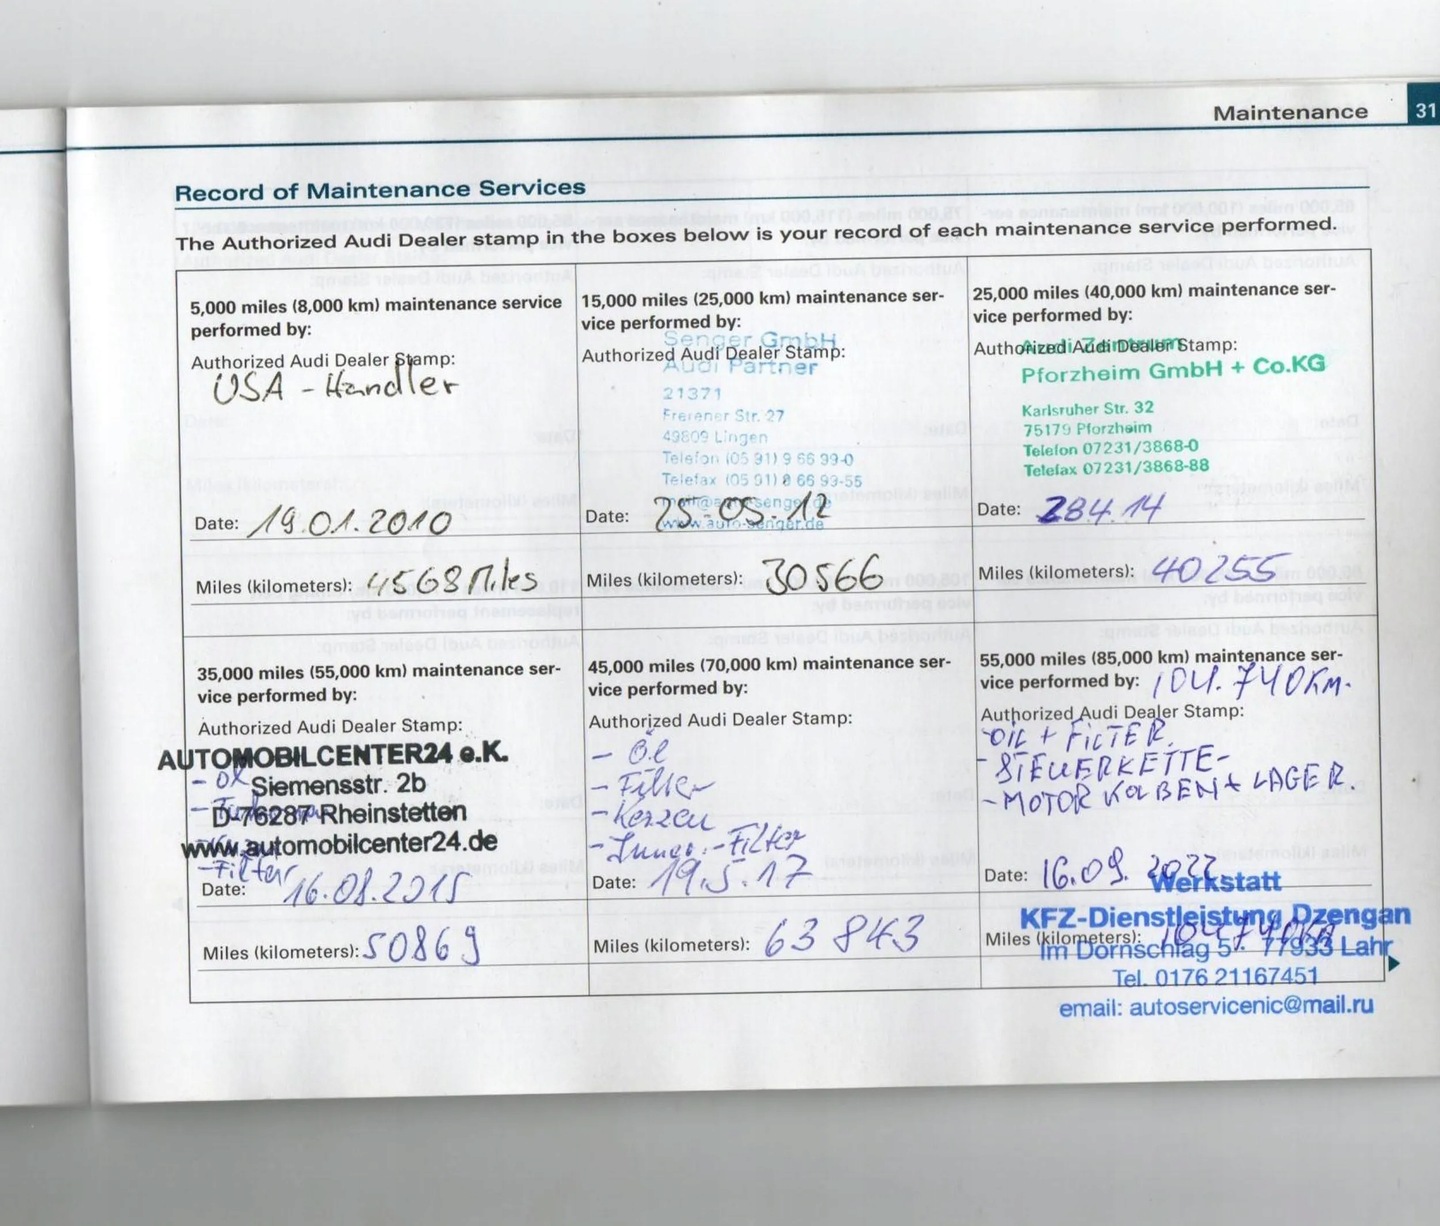 Maintenance 31
Record of Maintenance Services
The Authorized Audi Dealer stamp in the boxes below is your record of each maintenance service performed.
5,000 miles (8,000 km) maintenance service
performed by:
Authorized Audi Dealer Stamp:
USA - Händler
Date: 19.01.2010
Miles (kilometers): 4568 Miles
15,000 miles (25,000 km) maintenance ser-
vice performed by:
Senger GmbH
Authorized Audi Dealer Stamp:
Audi Partner
21371
Frerener Str. 27
49809 Lingen
Telefon (05 91) 9 66 99-0
Telefax (05 91) 9 66 99-55
Date: 25-05-12
www.auto-senger.de
Miles (kilometers): 30566
25,000 miles (40,000 km) maintenance ser-
vice performed by:
Audi Zentrum
Authorized Audi Dealer Stamp:
Pforzheim GmbH + Co.KG
Karlsruher Str. 32
75179 Pforzheim
Telefon 07231/3868-0
Telefax 07231/3868-88
Date: 284.14
Miles (kilometers): 40255
35,000 miles (55,000 km) maintenance ser-
vice performed by:
Authorized Audi Dealer Stamp:
AUTOMOBILCENTER24 e.K.
- Öl
Siemensstr. 2b
D-76287 Rheinstetten
www.automobilcenter24.de
-Filter
Date: 16.08.2015
Miles (kilometers): 50869
45,000 miles (70,000 km) maintenance ser-
vice performed by:
Authorized Audi Dealer Stamp:
- Öl
- Filter
- Kerzen
- Innen-Filter
Date: 19.5.17
Miles (kilometers): 63 843
55,000 miles (85,000 km) maintenance ser-
vice performed by: 104.740Km.
Authorized Audi Dealer Stamp:
-OIL + FILTER.
- STEUERKETTE-
- MOTOR KOLBEN + LAGER.
Date: 16.09.2022
Werkstatt
KFZ-Dienstleistung Dzengan
Miles (kilometers): 104740Km
Im Dornschlag 57 77933 Lahr
Tel. 0176 21167451
email: autoservicenic@mail.ru